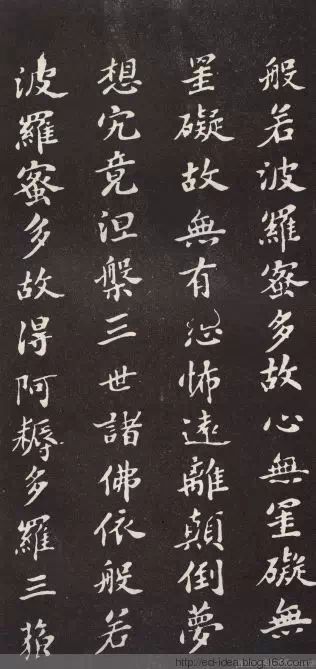 般若波羅蜜多故心無罣礙無
罣礙故無有恐怖遠離顛倒夢
想究竟涅槃三世諸佛依般若
波羅蜜多故得阿耨多羅三藐
http://ed-idea.blog.163.com